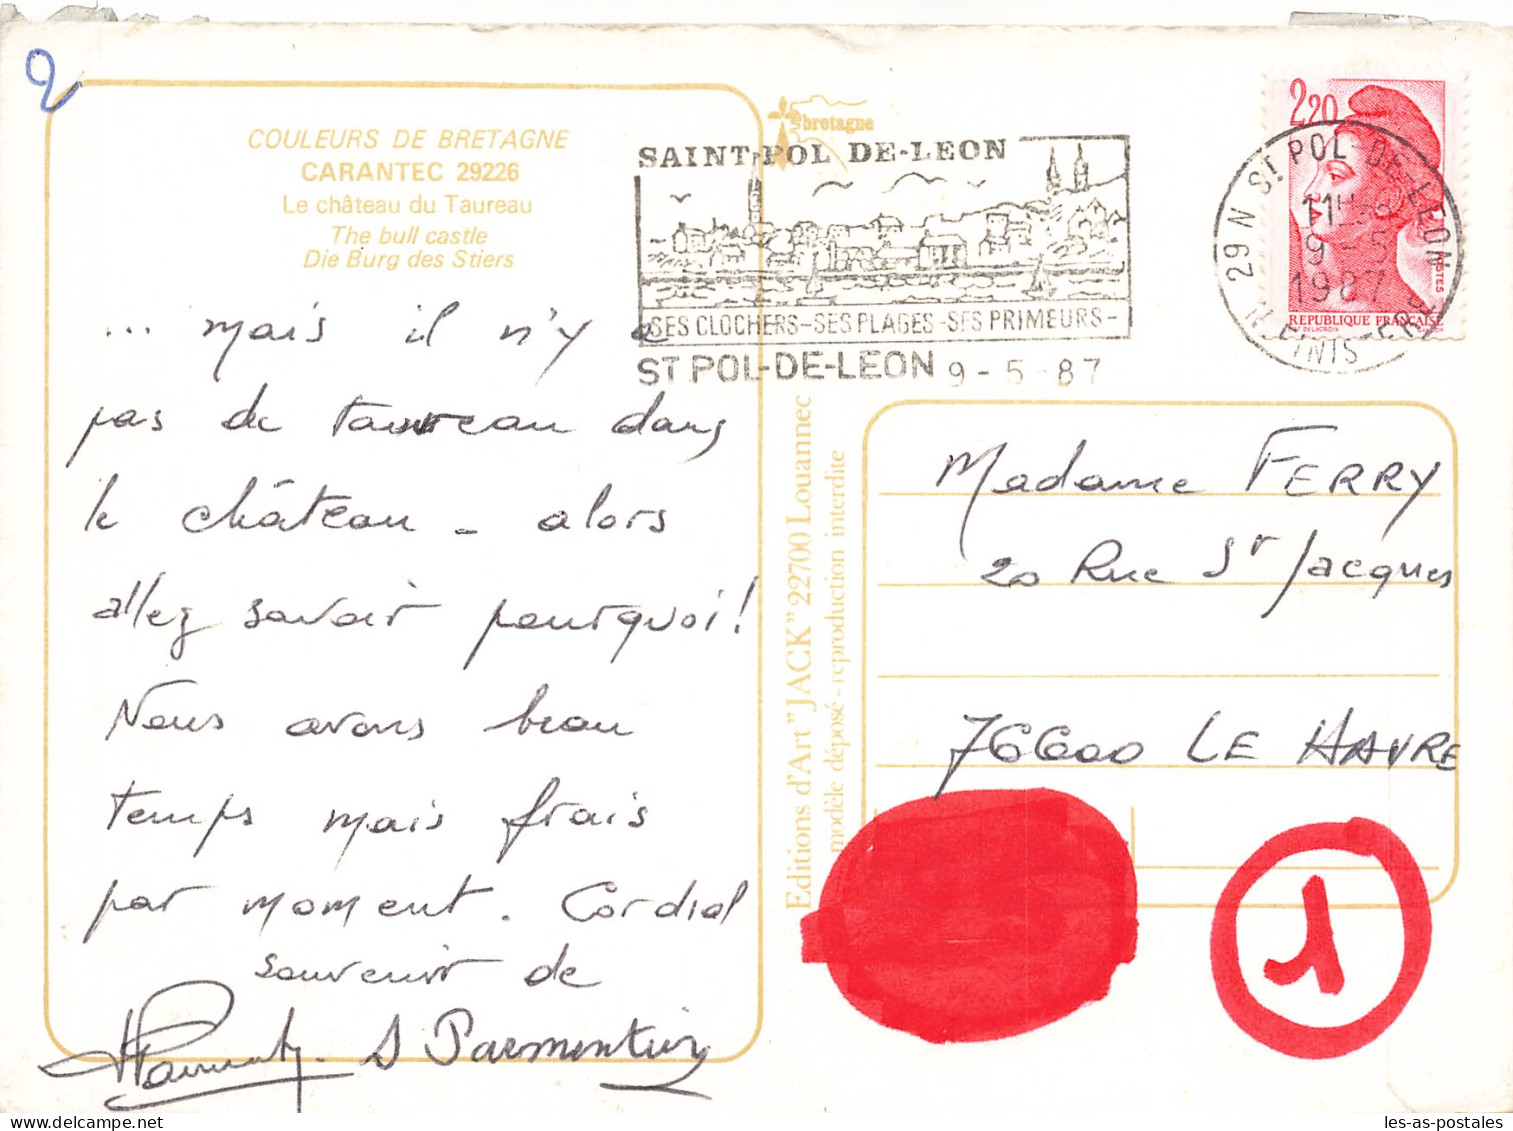 2
COULEURS DE BRETAGNE
CARANTEC 29226
Le château du Taureau
The bull castle
Die Burg des Stiers
... mais il n'y a
pas de taureau dans
le château - alors
allez savoir pourquoi !
Nous avons beau
temps mais frais
par moment. Cordial
souvenir de
Parmentier
bretagne
SAINT POL DE-LEON
SES CLOCHERS-SES PLAGES-SES PRIMEURS-
ST POL-DE-LEON 9 - 5 - 87
Editions d'Art "JACK" 22700 Louannec
modèle déposé - reproduction interdite
2,20
REPUBLIQUE FRANÇAISE
POSTES
29 N ST POL DE-LEON
11H
9 - 5
1987
Madame FERRY
20 Rue St Jacques
76600 LE HAVRE
1
les-as-postales